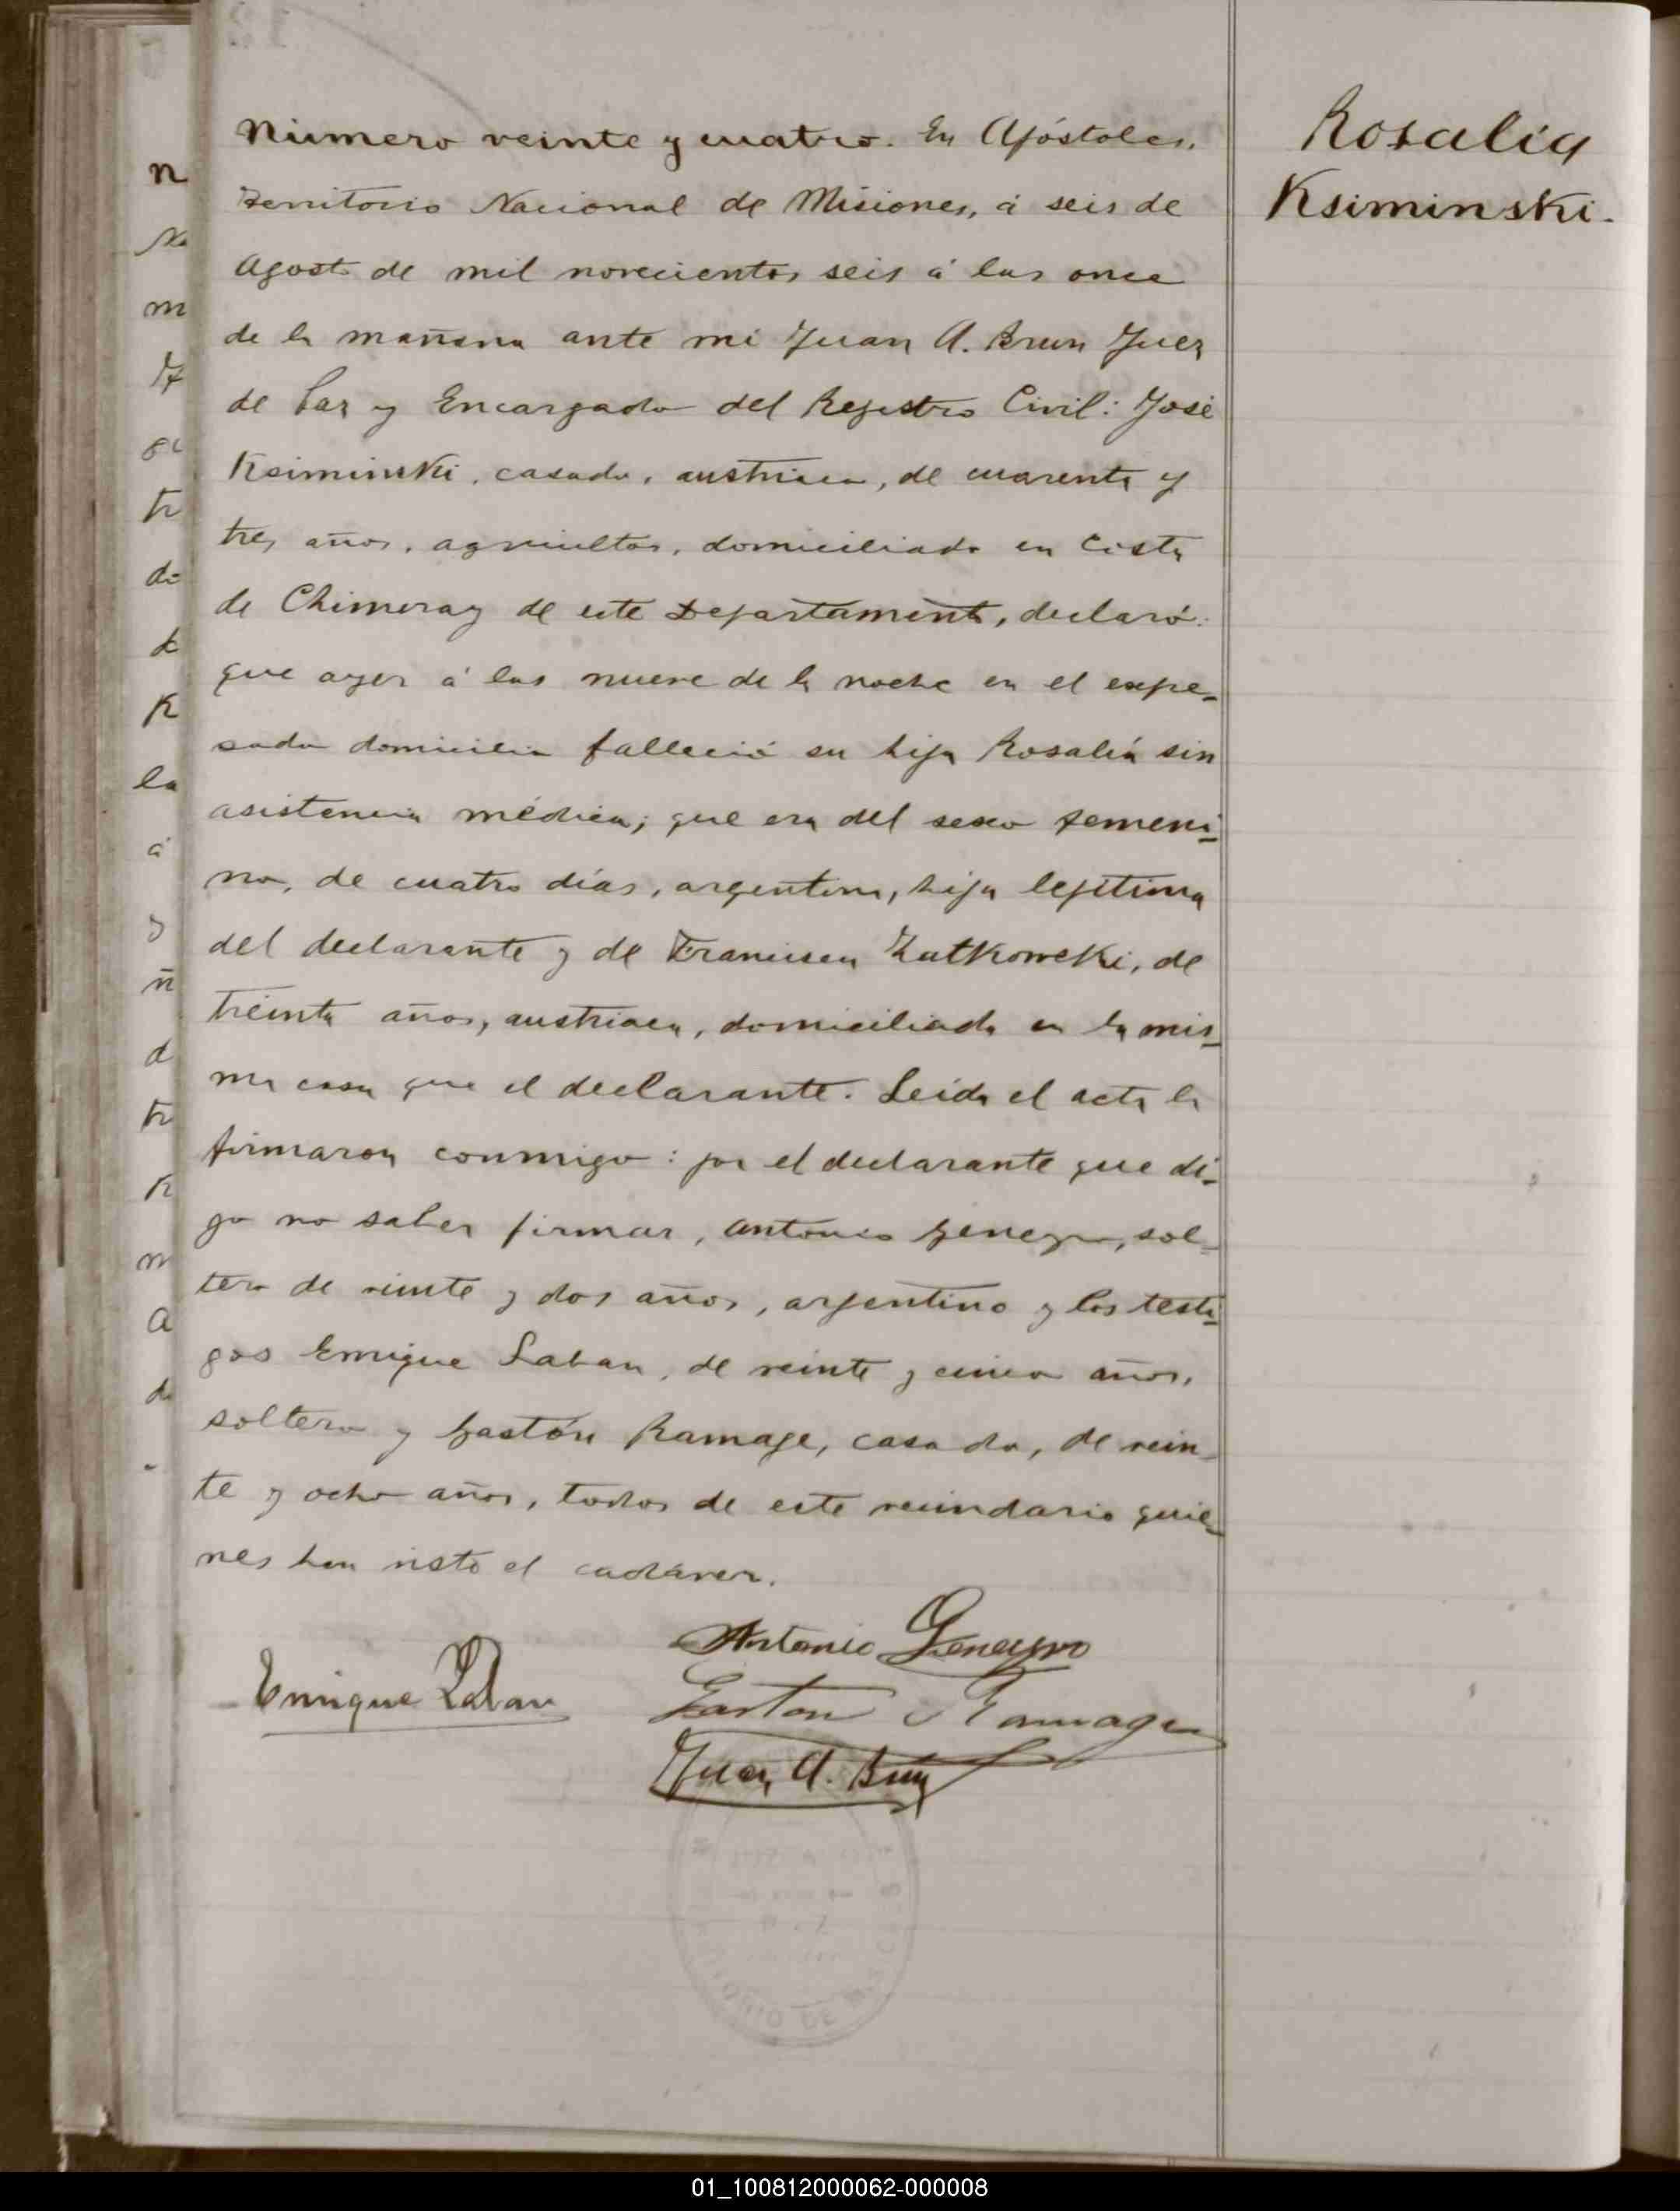 Número veinte y cuatro. En Apóstoles,
Territorio Nacional de Misiones, á seis de
Agosto de mil novecientos seis á las once
de la mañana ante mi Juan A. Brun Juez
de Paz y Encargado del Registro Civil: José
Ksiminski, casado, austriaco, de cuarenta y
tres años, agricultor, domiciliado en Costa
de Chimiray de este Departamento, declaró:
que ayer á las nueve de la noche en el expre-
sado domicilio falleció su hija Rosalía sin
asistencia médica; que era del sexo femeni-
no, de cuatro días, argentina, hija legítima
del declarante y de Francisca Zutkowski, de
treinta años, austriaca, domiciliada en la mis-
ma casa que el declarante. Leida el acta la
firmaron conmigo: por el declarante que di-
jo no saber firmar, Antonio Geneyro, sol-
tero de veinte y dos años, argentino y los testi-
gos Enrique Laban, de veinte y cinco años,
soltero y Gastón Ramage, casado, de vein-
te y ocho años, todos de este vecindario quie-
nes han visto el cadáver.
Antonio Geneyro
Enrique Laban
Gaston Ramage
Juan A. Brun
Rosalia
Ksiminski.
01_100812000062-000008